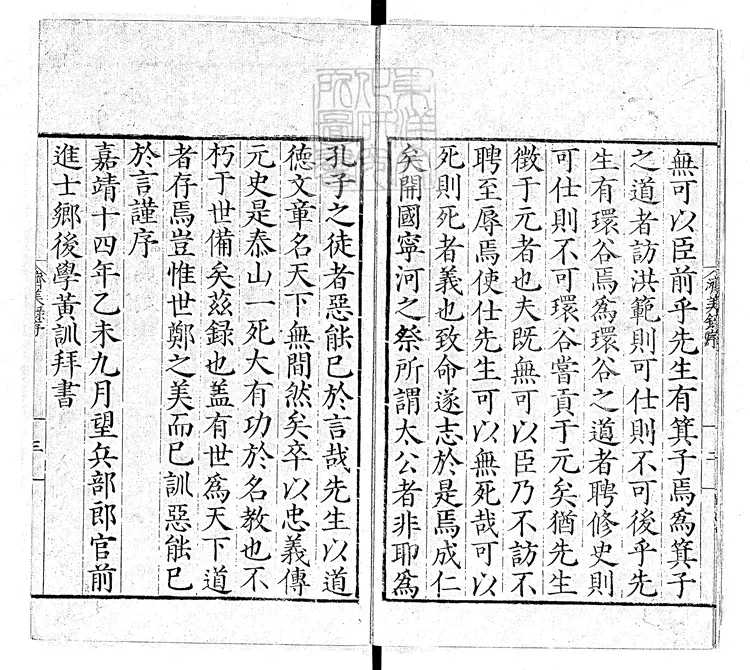 無可以臣前乎先生有箕子焉為箕子
之道者訪洪範則可仕則不可後乎先
生有環谷焉為環谷之道者聘修史則
可仕則不可環谷嘗貢于元矣猶先生
徵于元者也夫既無可以臣乃不訪不
聘至辱焉使仕先生可以無死哉可以
死則死者義也致命遂志於是焉成仁
矣開國寧河之祭所謂太公者非耶為
孔子之徒者惡能已於言哉先生以道
德文章名天下無間然矣卒以忠義傳
元史是泰山一死大有功於名教也不
朽于世備矣茲録也盖有世為天下道
者存焉豈惟世鄭之美而已訓惡能已
於言謹序
嘉靖十四年乙未九月望兵部郎官前
進士鄉後學黃訓拜書
濟美録序
二
濟美録序
三